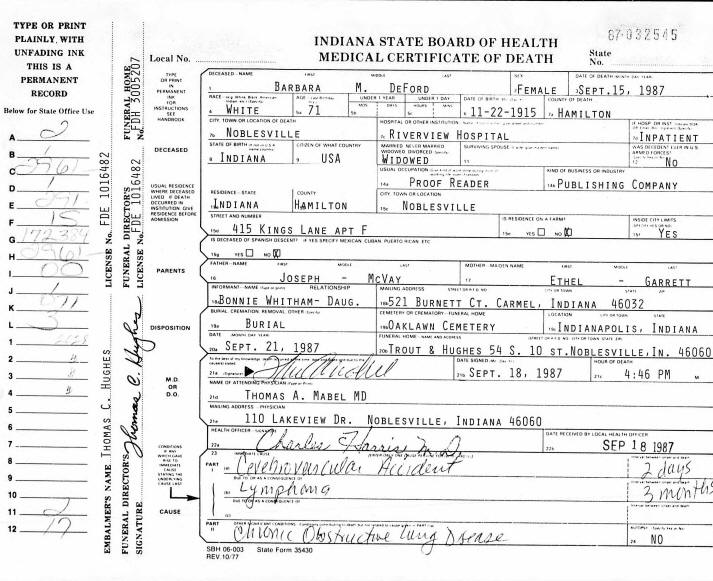 TYPE OR PRINT
PLAINLY, WITH
UNFADING INK
THIS IS A
PERMANENT
RECORD
Below for State Office Use
A 2
B 1
C 2961
D 1
E 291
F 15
G
H 2961
I 00
J 1
K
L 3
1
2
3
4
5
6
7
8
9
10
11 2
12 17
EMBALMER'S NAME THOMAS C. HUGHES LICENSE No. FDE 1016482
FUNERAL DIRECTOR'S SIGNATURE Thomas C. Hughes
FUNERAL DIRECTOR'S LICENSE No. FDE 1016482
FUNERAL HOME No. FDH 3005207
INDIANA STATE BOARD OF HEALTH
MEDICAL CERTIFICATE OF DEATH
87-032545
Local No.
State No.
TYPE
OR PRINT
IN
PERMANENT
INK
FOR
INSTRUCTIONS
SEE
HANDBOOK
DECEASED
USUAL RESIDENCE
WHERE DECEASED
LIVED IF DEATH
OCCURRED IN
INSTITUTION GIVE
RESIDENCE BEFORE
ADMISSION
PARENTS
DISPOSITION
M.D.
OR
D.O.
CONDITIONS
IF ANY
WHICH GAVE
RISE TO
IMMEDIATE
CAUSE
STATING THE
UNDERLYING
CAUSE LAST
CAUSE
DECEASED - NAME FIRST MIDDLE LAST SEX DATE OF DEATH
BARBARA M. DEFORD FEMALE SEPT.15, 1987
RACE AGE UNDER 1 YEAR UNDER 1 DAY DATE OF BIRTH COUNTY OF DEATH
WHITE 71 11-22-1915 HAMILTON
CITY, TOWN OR LOCATION OF DEATH HOSPITAL OR OTHER INSTITUTION
NOBLESVILLE RIVERVIEW HOSPITAL INPATIENT
STATE OF BIRTH CITIZEN OF WHAT COUNTRY MARRIED NEVER MARRIED WIDOWED DIVORCED SURVIVING SPOUSE WAS DECEDENT EVER IN U.S. ARMED FORCES?
INDIANA USA WIDOWED NO
USUAL OCCUPATION KIND OF BUSINESS OR INDUSTRY
PROOF READER PUBLISHING COMPANY
RESIDENCE - STATE COUNTY CITY TOWN OR LOCATION
INDIANA HAMILTON NOBLESVILLE
STREET AND NUMBER IS RESIDENCE ON A FARM? INSIDE CITY LIMITS
415 KINGS LANE APT F YES NO YES
IS DECEASED OF SPANISH DESCENT? IF YES SPECIFY MEXICAN, CUBAN, PUERTO RICAN, ETC
YES NO
FATHER - NAME FIRST MIDDLE LAST MOTHER - MAIDEN NAME FIRST MIDDLE LAST
JOSEPH - MCVAY ETHEL - GARRETT
INFORMANT - NAME RELATIONSHIP MAILING ADDRESS
BONNIE WHITHAM- DAUG. 521 BURNETT CT. CARMEL, INDIANA 46032
BURIAL, CREMATION, REMOVAL, OTHER CEMETERY OR CREMATORY - FUNERAL HOME LOCATION CITY OR TOWN STATE
BURIAL OAKLAWN CEMETERY INDIANAPOLIS, INDIANA
DATE FUNERAL HOME - NAME AND ADDRESS
SEPT. 21, 1987 TROUT & HUGHES 54 S. 10 ST.NOBLESVILLE,IN. 46060
DATE SIGNED HOUR OF DEATH
SEPT. 18, 1987 4:46 P M
NAME OF ATTENDING PHYSICIAN
THOMAS A. MABEL MD
MAILING ADDRESS - PHYSICIAN
110 LAKEVIEW DR. NOBLESVILLE, INDIANA 46060
HEALTH OFFICER - SIGNATURE DATE RECEIVED BY LOCAL HEALTH OFFICER
Charles Harris M.D SEP 18 1987
23 IMMEDIATE CAUSE
PART I
(a) Cerebrovascular Accident 2 days
DUE TO OR AS A CONSEQUENCE OF
(b) Lymphoma 3 months
DUE TO OR AS A CONSEQUENCE OF
(c)
PART II OTHER SIGNIFICANT CONDITIONS AUTOPSY
Chronic Obstructive Lung Disease NO
SBH 06-003 State Form 35430
REV 10/77